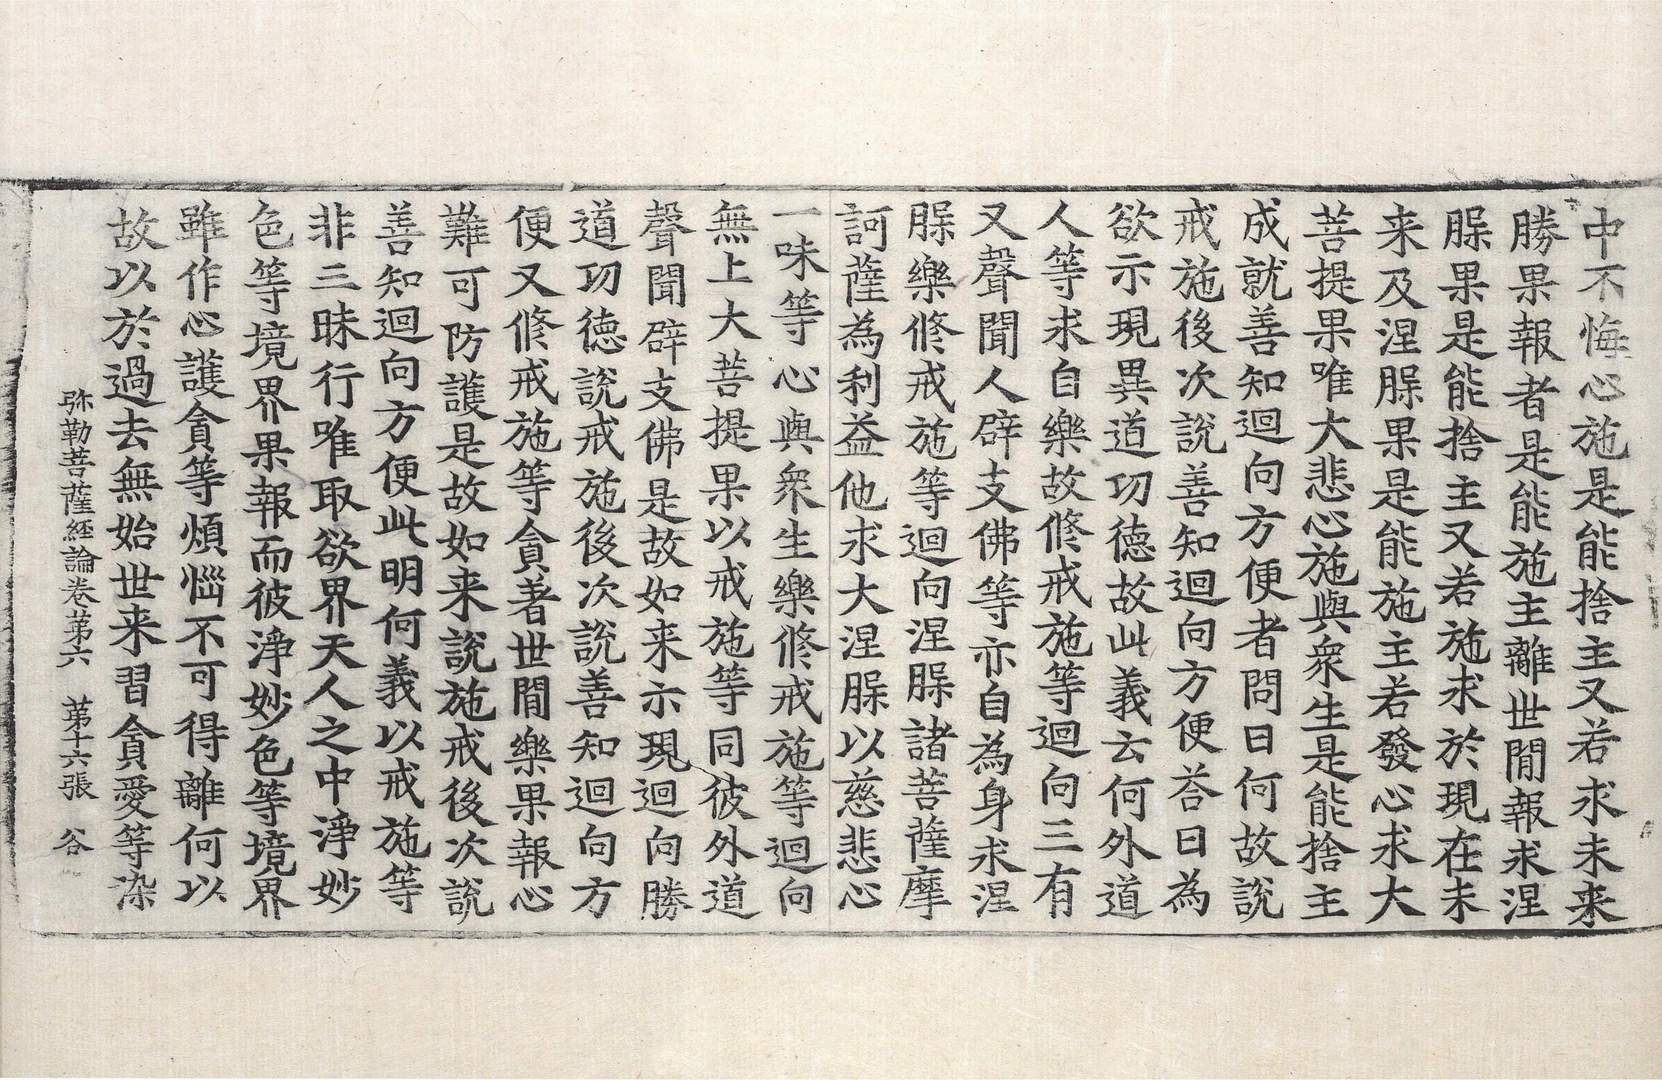 中不悔心施是能捨主又若求未来
勝果報者是能施主離世間報求涅
𦙶果是能捨主又若施求於現在未
来及涅𦙶果是能施主若發心求大
菩提果唯大悲心施與衆生是能捨主
成就善知迴向方便者問曰何故說
戒施後次說善知迴向方便荅曰為
欲示現異道功德故此義云何外道
人等求自樂故修戒施等迴向三有
又聲聞人辟支佛等亦自為身求涅
𦙶樂修戒施等迴向涅𦙶諸菩薩摩
訶薩為利益他求大涅𦙶以慈悲心
一味等心與衆生樂修戒施等迴向
無上大菩提果以戒施等同彼外道
聲聞辟支佛是故如来示現迴向勝
道功德說戒施後次說善知迴向方
便又修戒施等貪著世間樂果報心
難可防護是故如来說施戒後次說
善知迴向方便此明何義以戒施等
非三昧行唯取欲界天人之中淨妙
色等境界果報而彼淨妙色等境界
雖作心護貪等煩惱不可得離何以
故以於過去無始世来習貪愛等染
弥勒菩薩経論卷第六 第十六張 谷